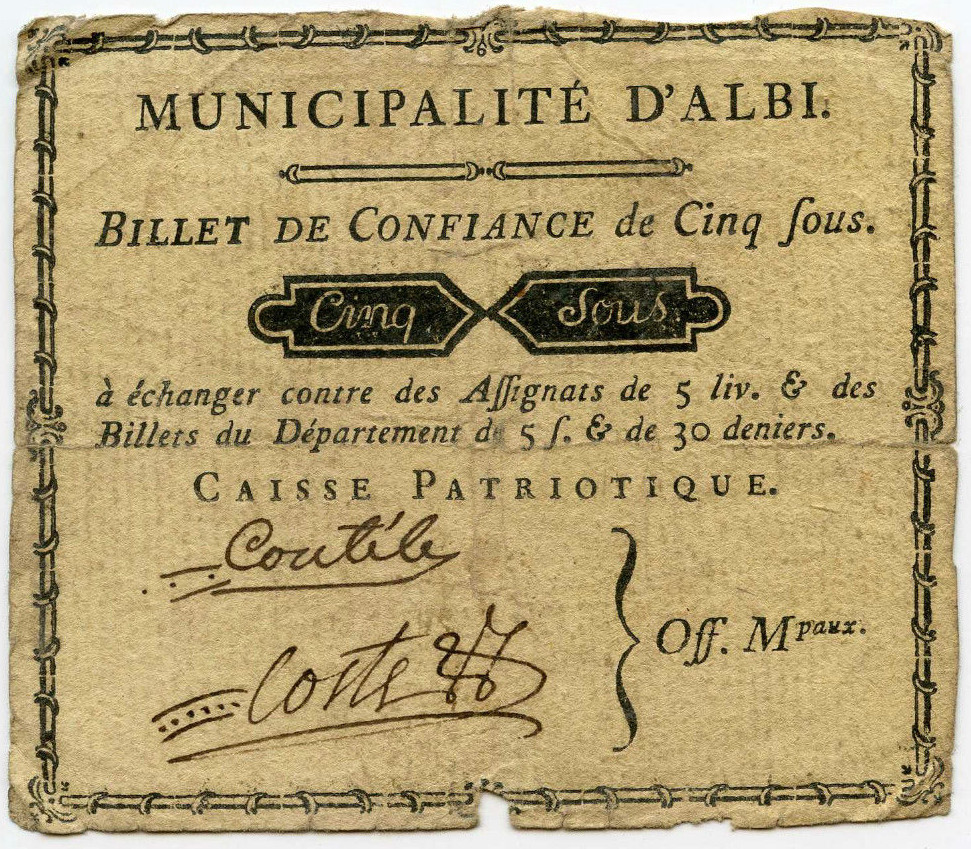 MUNICIPALITÉ D'ALBI.
BILLET DE CONFIANCE de Cinq ſous.
Cinq Sous
à échanger contre des Aſſignats de 5 liv. & des
Billets du Département de 5 ſ. & de 30 deniers.
CAISSE PATRIOTIQUE.
Coutéle
Coste
Off. Mpaux.